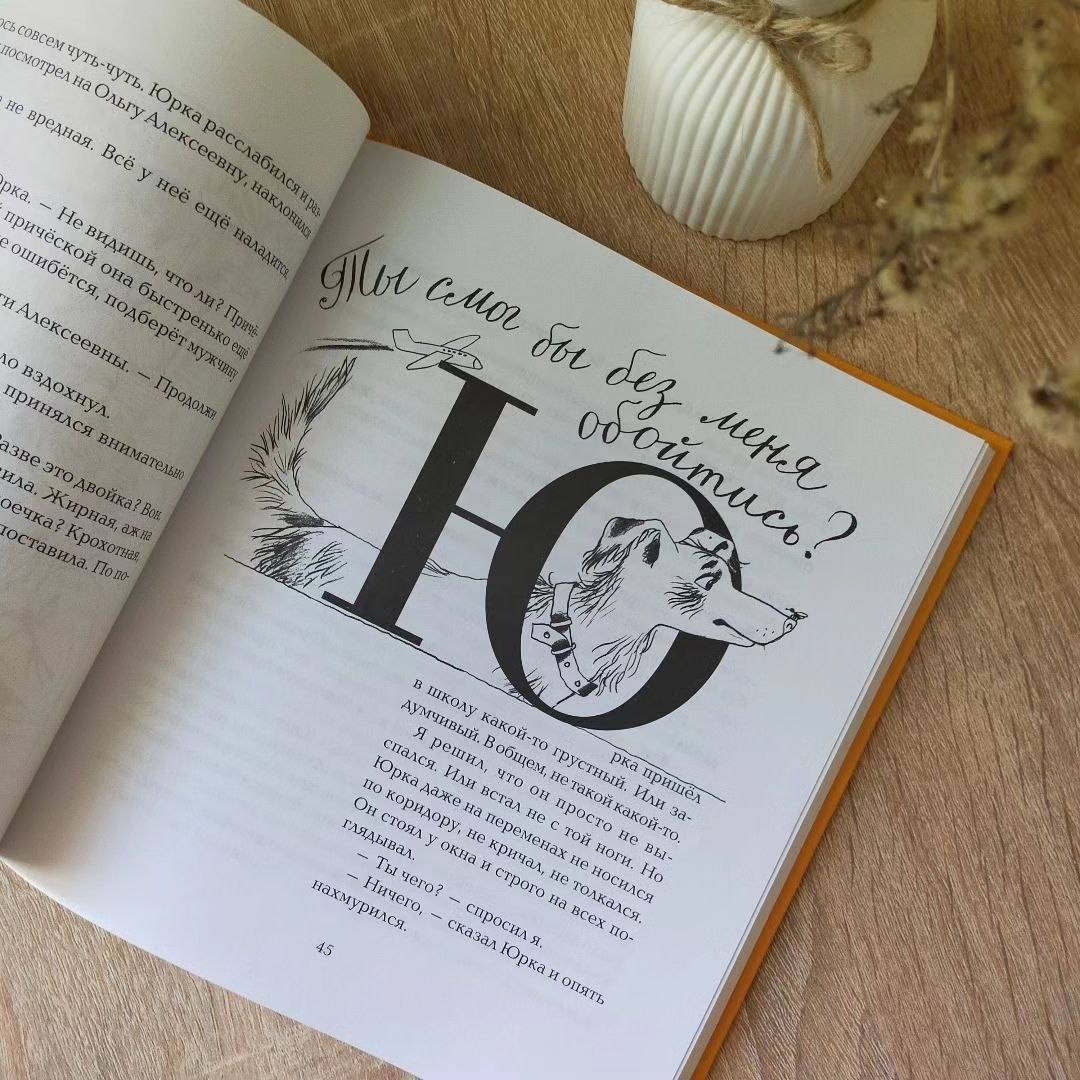 совсем чуть-чуть. Юрка расслабился и раз-
посмотрел на Ольгу Алексеевну, наклонился
не вредная. Всё у неё ещё наладится,
— Не видишь, что ли? Причё-
причёской она быстренько ещё
ошибётся, подберёт мужчину
Алексеевны. — Продолжи
вздохнул.
принялся внимательно
Разве это двойка? Вон,
Жирная, аж на
Крохотная,
поставила. По по-
Ты смог бы без меня
обойтись?
Ю
рка пришёл
в школу какой-то грустный. Или за-
думчивый. В общем, не такой какой-то.
Я решил, что он просто не вы-
спался. Или встал не с той ноги. Но
Юрка даже на переменах не носился
по коридору, не кричал, не толкался.
Он стоял у окна и строго на всех по-
глядывал.
— Ты чего? — спросил я.
— Ничего, — сказал Юрка и опять
нахмурился.
45